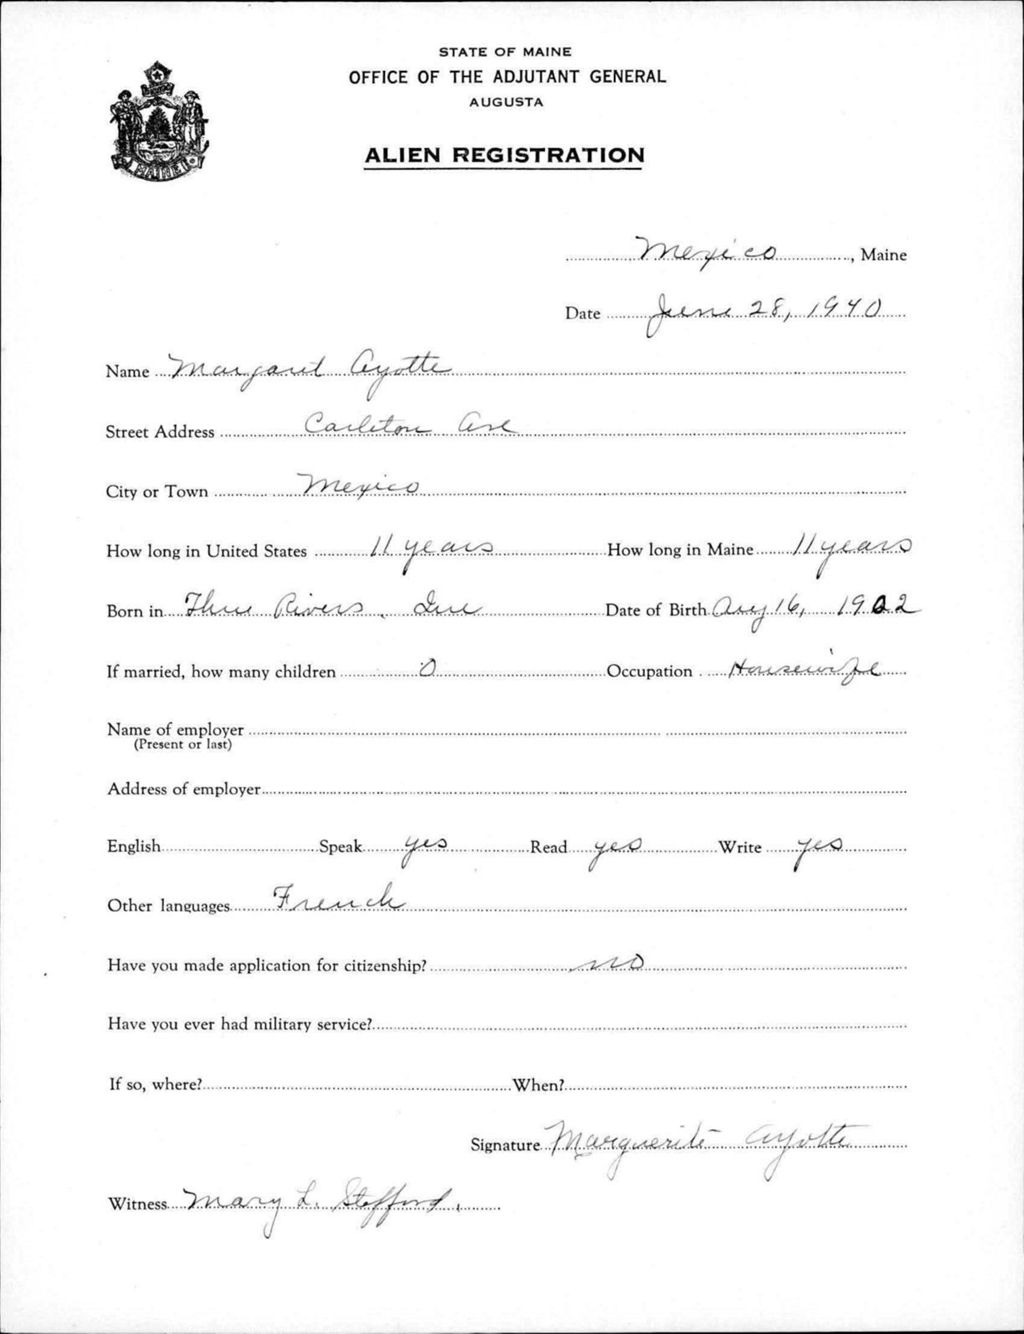 STATE OF MAINE
OFFICE OF THE ADJUTANT GENERAL
AUGUSTA
ALIEN REGISTRATION
MAINE
Mexico, Maine
Date June 28, 1940
Name Margaret Ayotte
Street Address Carleton Ave
City or Town Mexico
How long in United States 11 years How long in Maine 11 years
Born in Three Rivers, Que Date of Birth Aug 16, 1902
If married, how many children 0 Occupation Housewife
Name of employer
(Present or last)
Address of employer
English Speak yes Read yes Write yes
Other languages French
Have you made application for citizenship? no
Have you ever had military service?
If so, where? When?
Signature Marguerite Ayotte
Witness Mary L. Stafford.